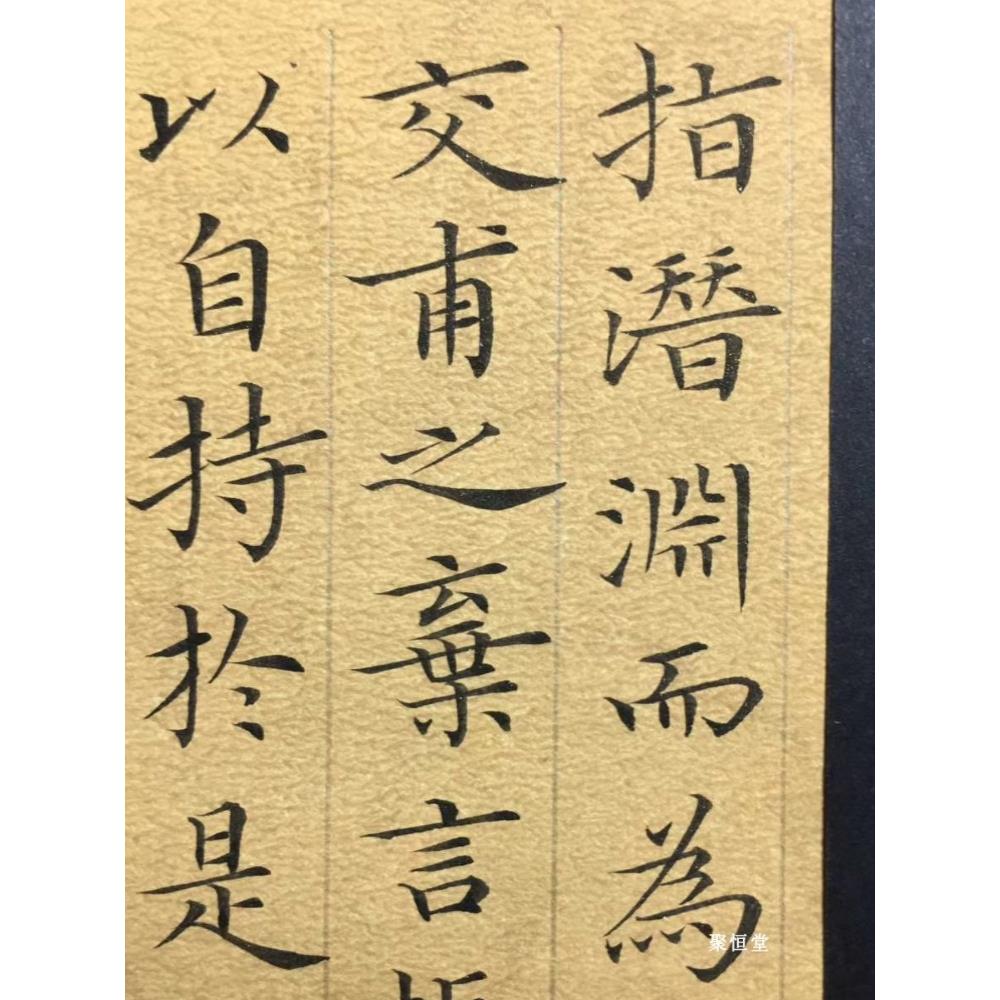 指潛淵而為
交甫之棄言
以自持於是
聚恒堂